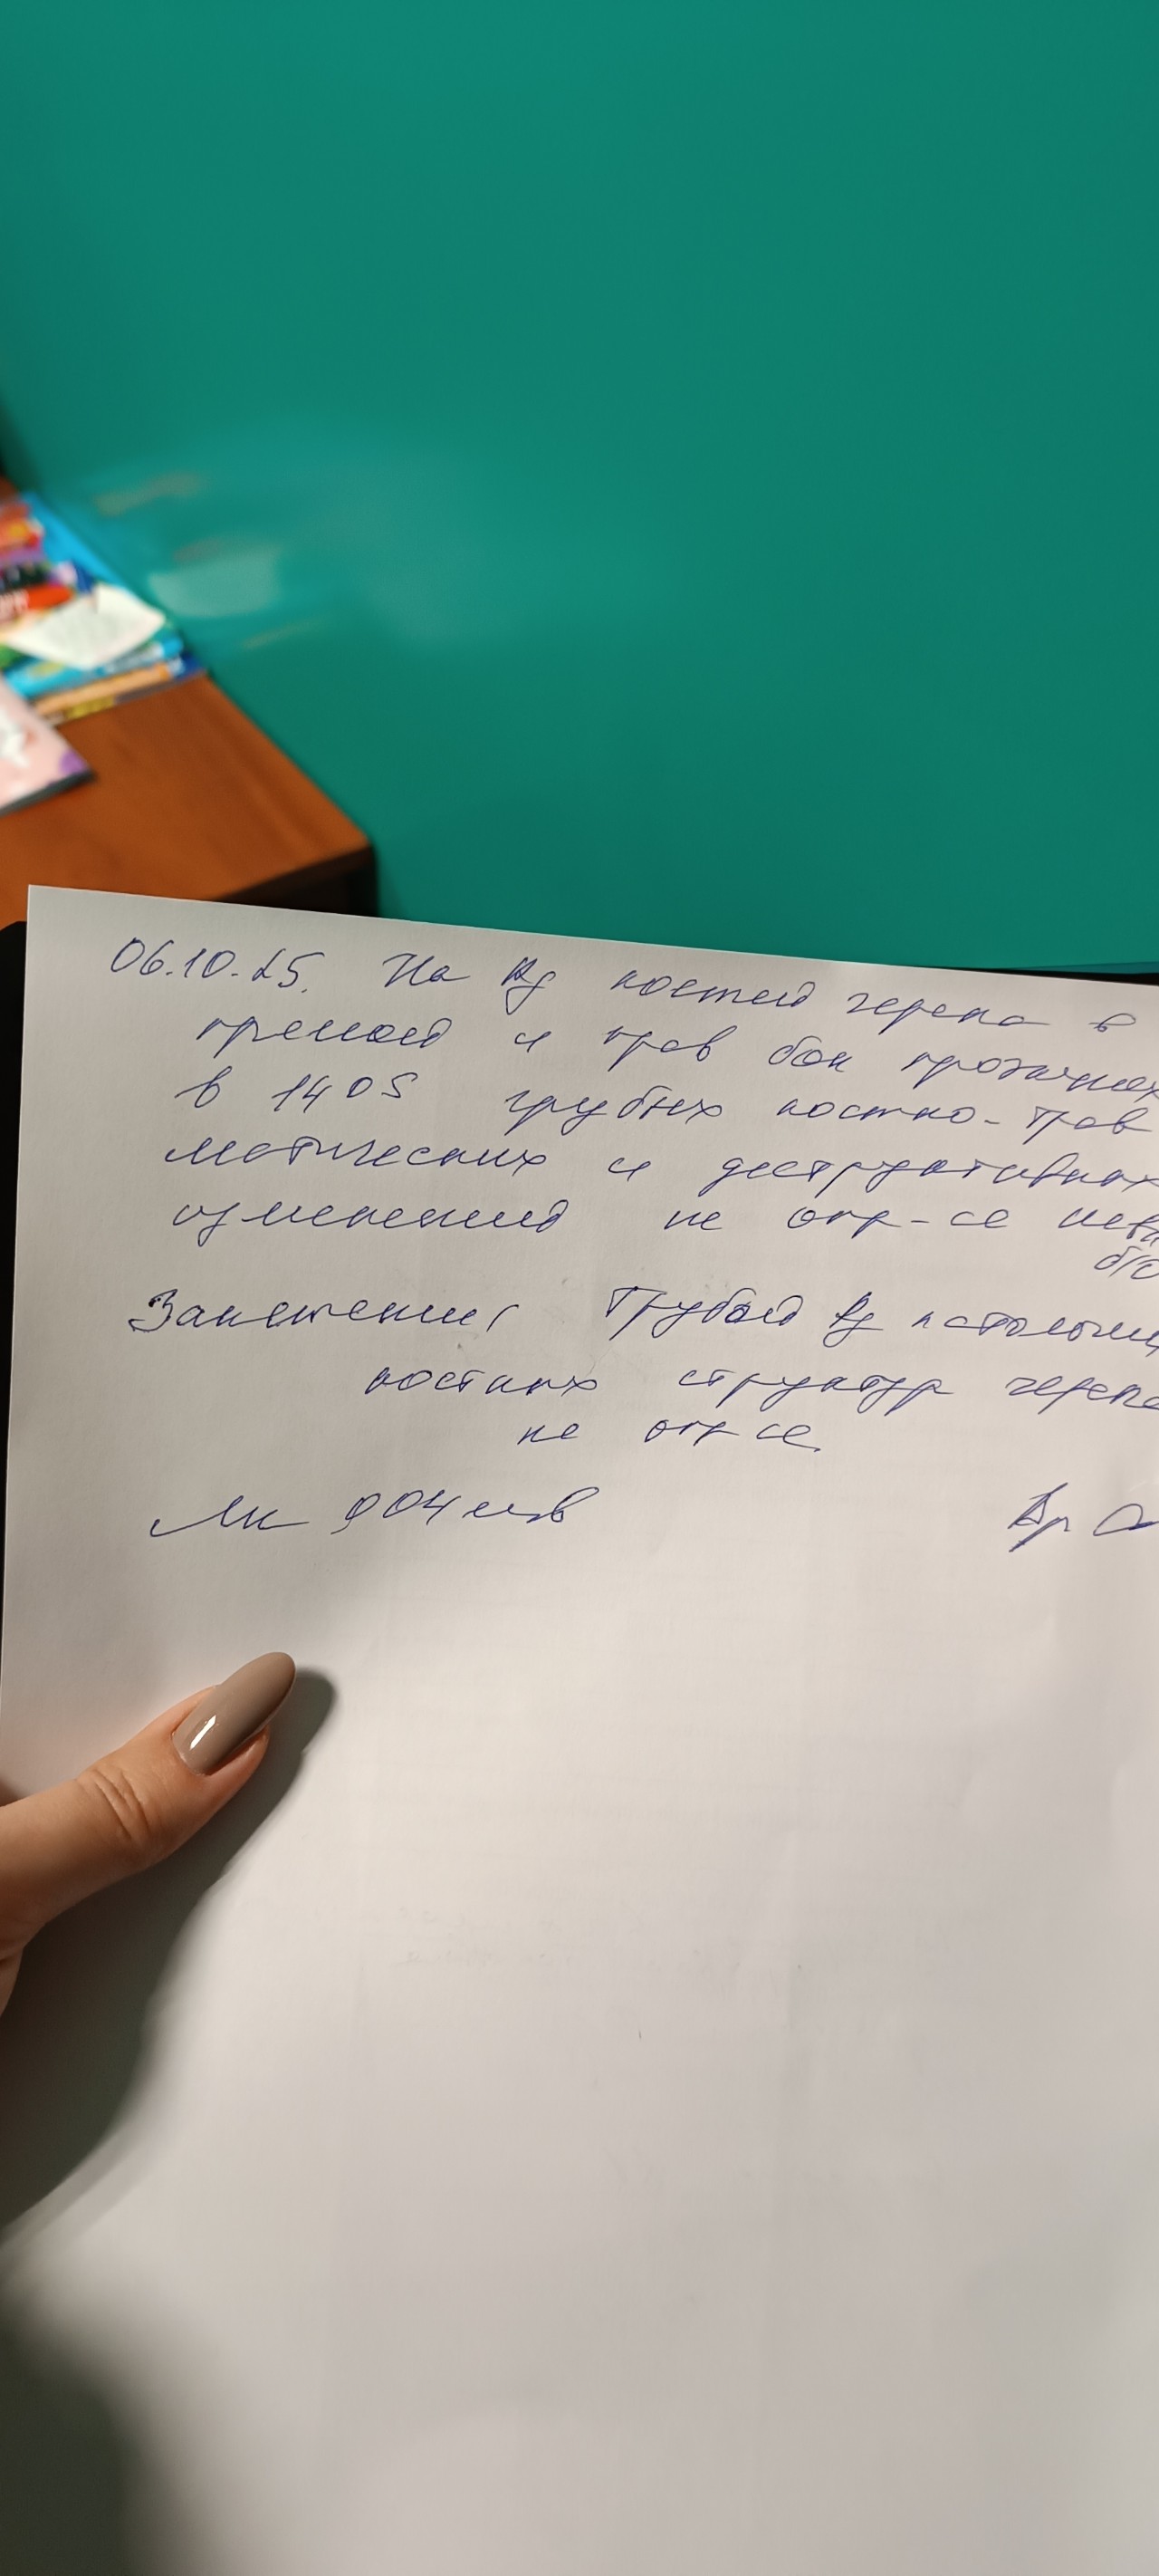 06.10.25. На Rg костей черепа в
прямой и прав бок проекциях
в 1405 грубых костно-трав
матических и деструктивных
изменений не опр-ся
Заключение: Грубой Rg патологии
костных структур черепа
не опр ся.
004 мзв
Вр